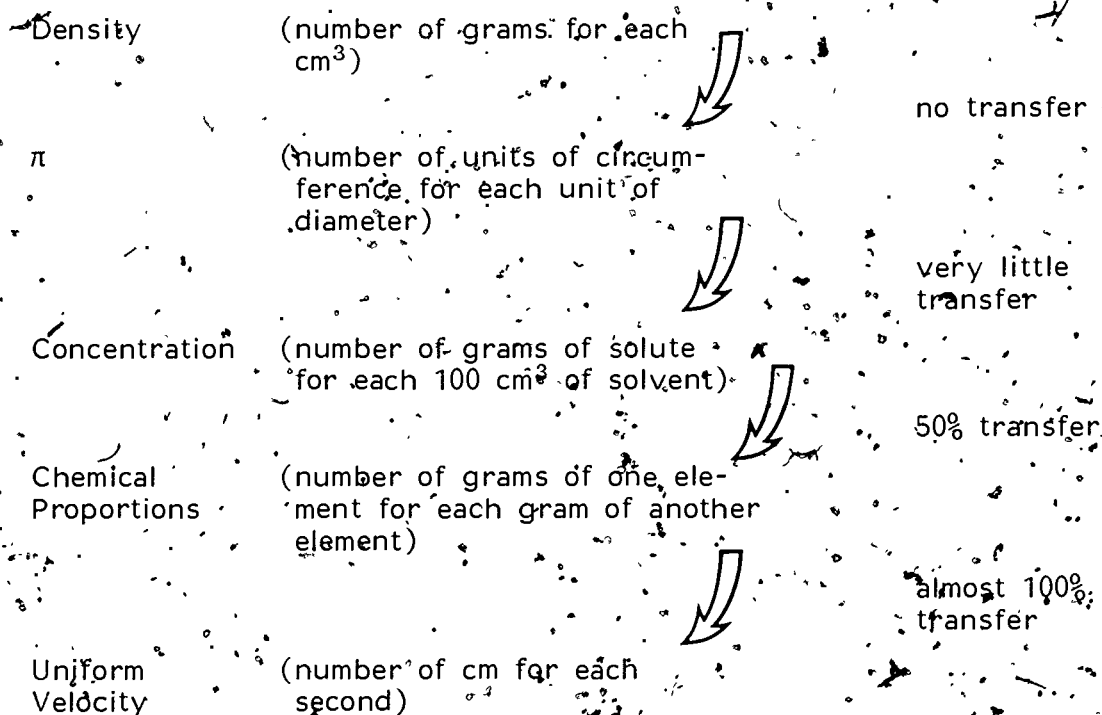 Density (number of grams for each
cm³)
no transfer
π (number of units of circum-
ference for each unit of
diameter)
very little
transfer
Concentration (number of grams of solute
for each 100 cm³ of solvent)
50% transfer
Chemical (number of grams of one ele-
Proportions ment for each gram of another
element)
almost 100%
transfer
Uniform (number of cm for each
Velocity second)